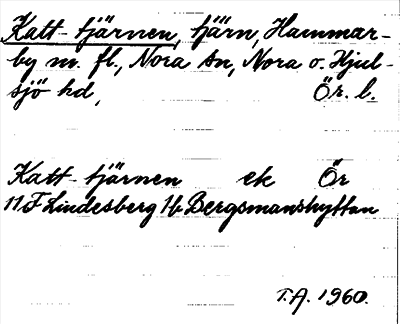 Katt-tjärnen, tjärn, Hammar-
by m. fl., Nora sn, Nora o. Hjul-
sjö hd, Ör. l.
Katt-tjärnen ek Ör
11 F Lindesberg 1b Bergsmanshyttan
T.A. 1960.